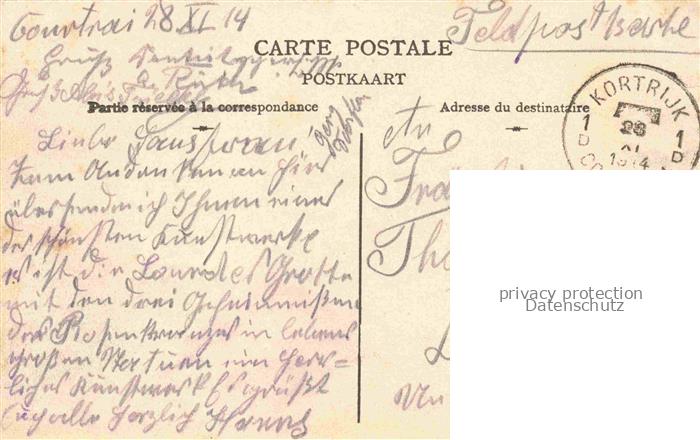 Courtrai 28 XI 14
Feldpostkarte
CARTE POSTALE
POSTKAART
Partie réservée à la correspondance
Adresse du destinataire
KORTRIJK
1 1
D D
28
XI
1914
An
Liebe
Zum Andenken an hier
übersende ich Ihnen eines
der schönsten Kunstwerke
es ist die Lourdes Grotte
mit den drei Geheimnissen
des Rosenkranzes in lebens
großen Statuen ein herr=
liches Kunstwerk Es grüßt
Euch alle herzlich
Fra
Th
privacy protection
Datenschutz